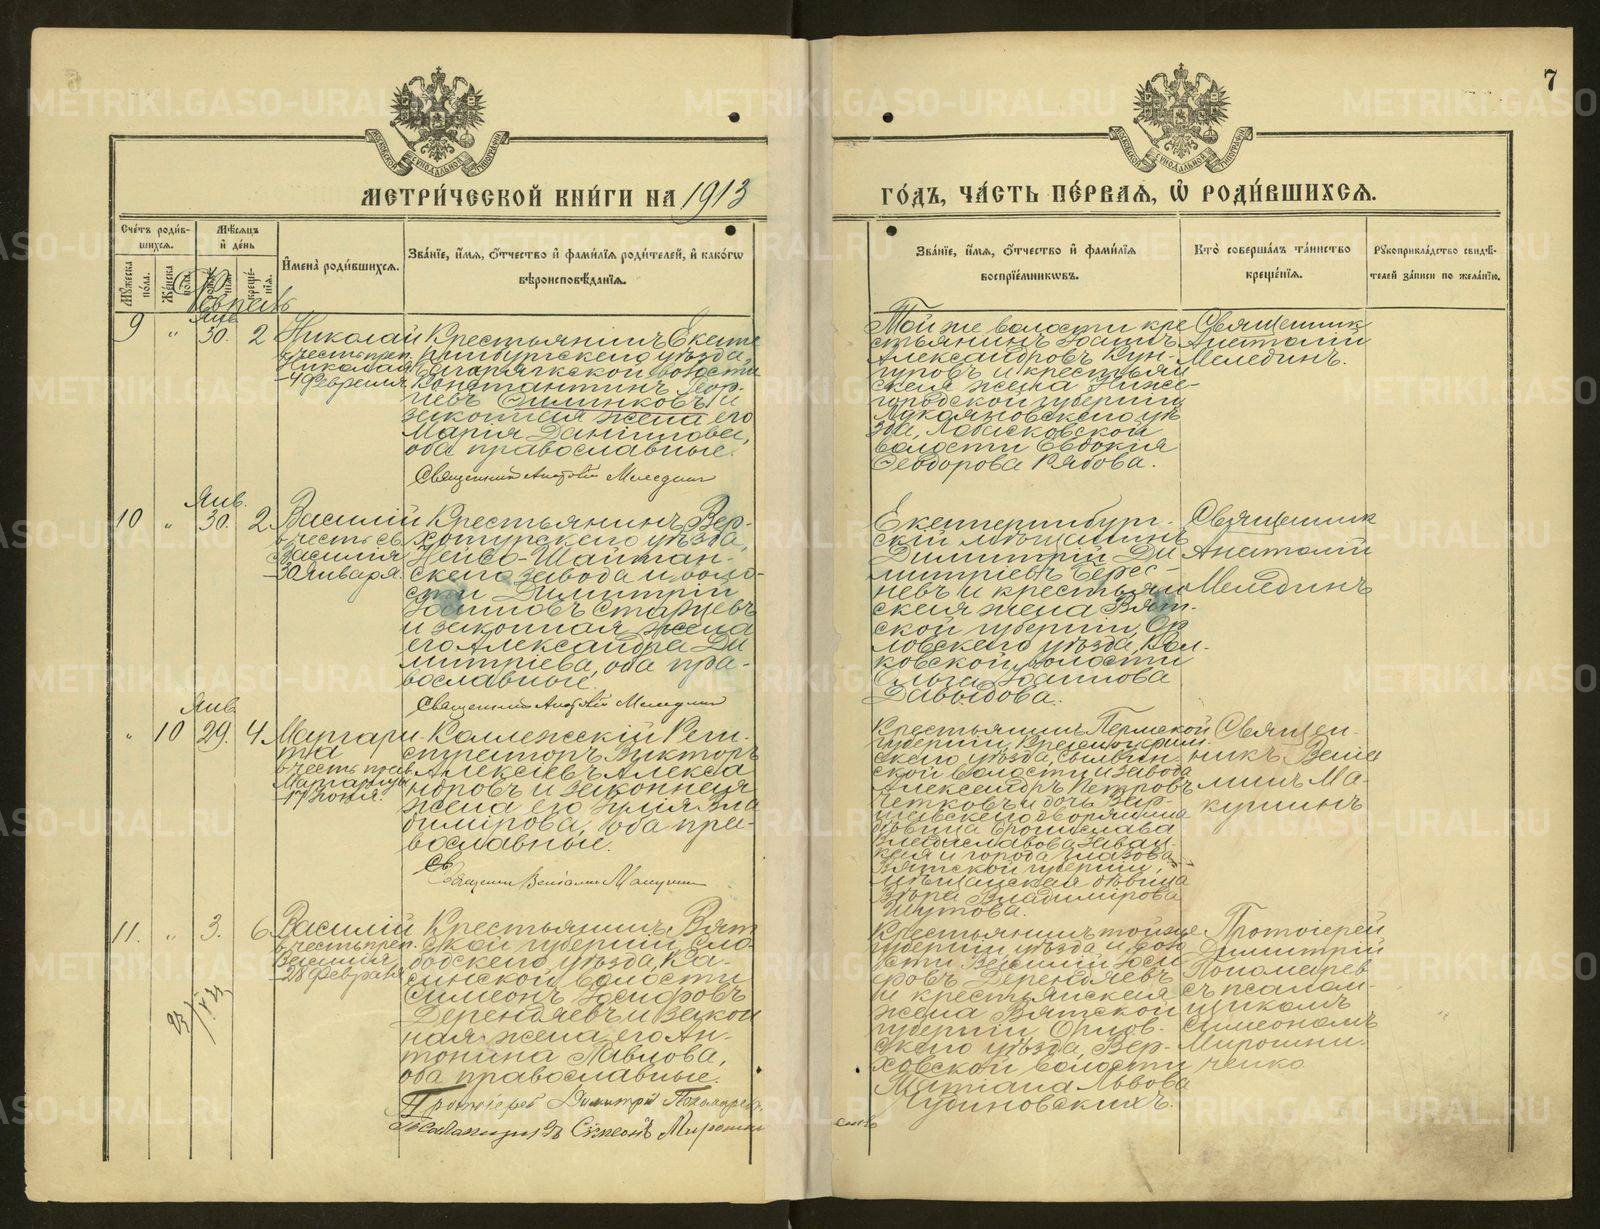 7
МЕТРИ́ЧЕСКОЙ КНИ́ГИ НА 1913
ГО́ДЪ, ЧА́СТЬ ПЕ́РВАЯ, Ѡ҆ РОДИ́ВШИХСЯ.
Сче́тъ роди́в-
шихся.
Му́жеска по́ла.
Же́нска по́ла.
Мѣ́сяцъ и҆ де́нь
креще́нїя.
И҆мена̀ роди́вшихся.
Зва́нїе, и҆́мя, ѻ҆́тчество и҆ фами́лїя роди́телей, и҆ како́гѡ
вѣроисповѣ́данїя.
Зва́нїе, и҆́мя, ѻ҆́тчество и҆ фами́лїя
воспрїе́мниковъ.
Кто̀ соверша́лъ та́инство
креще́нїя.
Рукоприкла́дство свидѣ́-
телей за́писи по жела́нїю.
Февраль
9
"
Янв
30.
2
Николай
въ честь преп.
Николая
4 Февраля
Крестьянинъ Екате
ринбургскаго уѣзда,
волости
Константинъ Геор-
гіевъ и
законная жена его
Марія Даніилова,
оба православные.
Священникъ Анатолій Меледин
Той же волости кре
стьянинъ Іоаннъ
Александровъ Кун-
гуровъ и крестьян
ская жена Ниже-
городской губерніи
Лукояновскаго уѣ
зда,
волости Евдокія
Ѳеодорова Рябова.
Священник
Анатолій
Мелединъ.
10
"
Янв.
30.
2
Василій
въ честь св.
Василія
30 Января.
Крестьянинъ Вер-
хотурскаго уѣзда,
Нейво-Шайтан-
скаго завода и воло-
сти Димитрій
Іоанновъ Старцевъ
и законная жена
его Александра Ди
митріева, оба пра-
вославные.
Священникъ Анатолій Меледин
Екатеринбург-
скій мѣщанинъ
Димитрій Ди
митріевъ Берс-
невъ и крестьян
ская жена Вят-
ской губерніи, Ор
ловскаго уѣзда,
ковской волости
Ольга Іоаннова
Давыдова.
Священник
Анатолій
Мелединъ
"
10
Янв
29.
4
Маргари
та
въ честь прав.
Маргариты
17 Іюля.
Коллежскій Реги-
страторъ Викторъ
Алексіевъ Алекса
ндровъ и законная
жена его Юлія Вла
димірова, оба пра-
вославные.
Св
Священникъ Веніамин Макушин
Крестьянинъ Пермской
губерніи, Красноуфим
скаго уѣзда,
ской волости и завода
Александръ Петровъ
и дочь Вар-
шавскаго дворянина
дѣвица Бронислава
и города Глазова
Вятской губерніи,
мѣщанская дѣвица
Вѣра Владимірова
Шутова.
Священ-
никъ Вениа
минъ Ма-
кушинъ
11.
"
3.
6
Василій
въ честь преп.
Василія
28 Февраля
Крестьянинъ Вят
ской губерніи, Сло
бодскаго уѣзда, Ка-
синской волости
Симеонъ Іосифовъ
Дерендяевъ и закон
ная жена его Ан-
тонина Павлова,
оба православные.
Протоіерей Димитрій Пономарев
Псаломщикъ Симеонъ Мирошни
Крестьянинъ той же
губерніи, уѣзда и воло
сти Василій Іоси
фовъ Дерендяевъ
и крестьянская
жена Вятской
губерніи, Орлов-
скаго уѣзда, Вер-
ховской волости
Татіана Львова
Чудиновскихъ.
Протоіерей
Димитрій
Пономарев
съ псалом-
щикомъ
Симеономъ
Мирошни-
ченко
METRIKI.GASO-URAL.RU